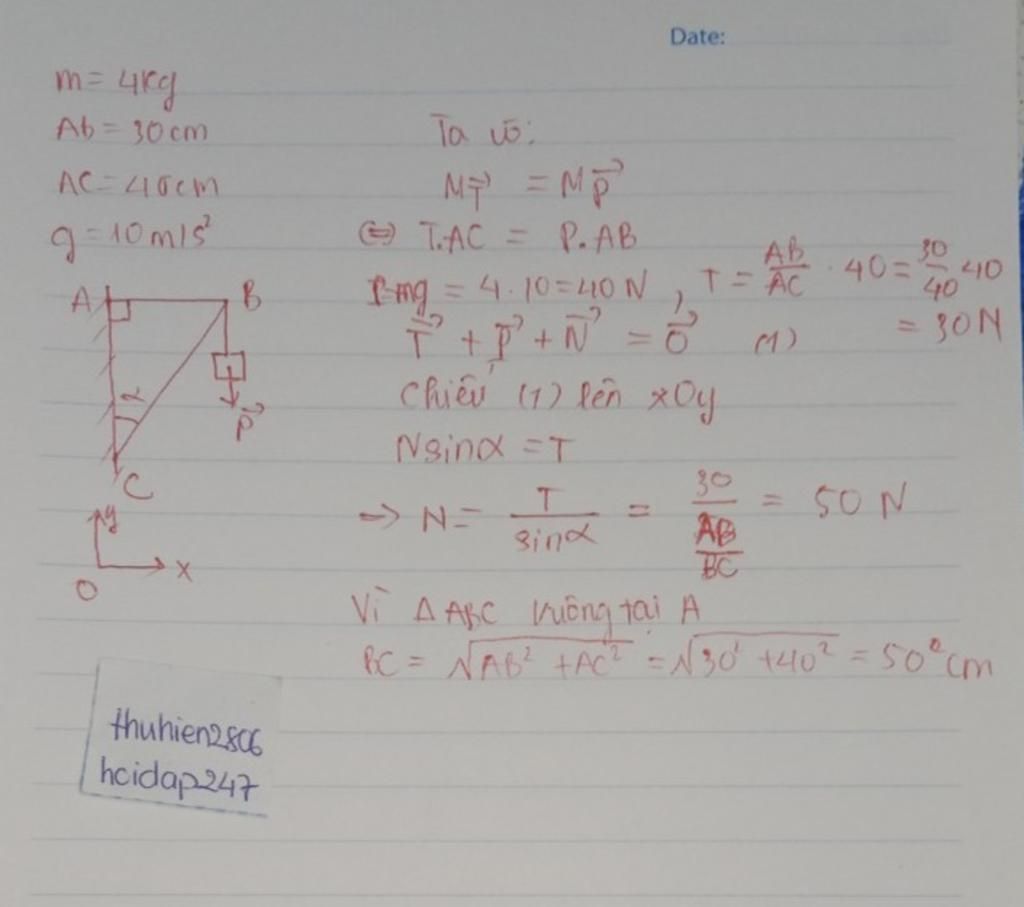 Date:
m = 4kg
Ab = 30cm
AC = 40cm
g = 10m/s²
Ta có:
M_T⃗ = M_P⃗
⇔ T.AC = P.AB
P=mg = 4.10=40N, T = AB/AC . 40 = 30/40 . 40
= 30N
T⃗ + P⃗ + N⃗ = 0⃗ (1)
Chiếu (1) lên xOy
Nsinα = T
→ N = T/sinα = 30/(AB/BC) = 50 N
Vì Δ ABC vuông tại A
BC = √AB² + AC² = √30² + 40² = 50 cm
A
B
α
P⃗
C
y
O
x
thuhien2806
hcidap247